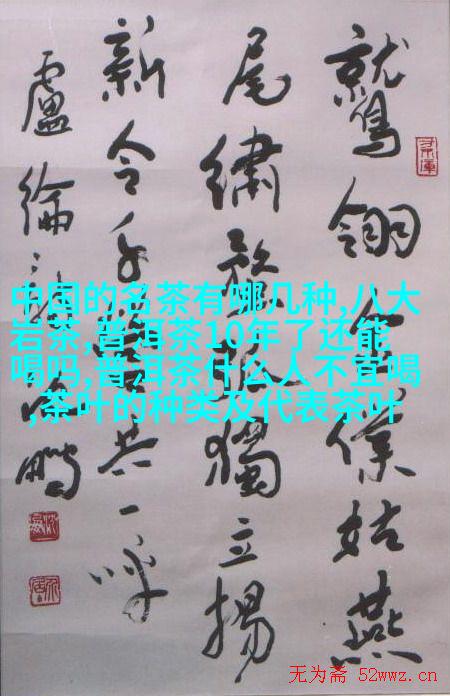 鷲翎金僕姑燕
尾繡蝥弧獨立揚
新令千營共一呼
盧綸詩鵬
中国的名茶有哪几种,八大
岩茶,普洱茶10年了还能
喝吗,普洱茶什么人不宜喝
,茶叶的种类及代表茶叶
无为斋 52wwz.cn